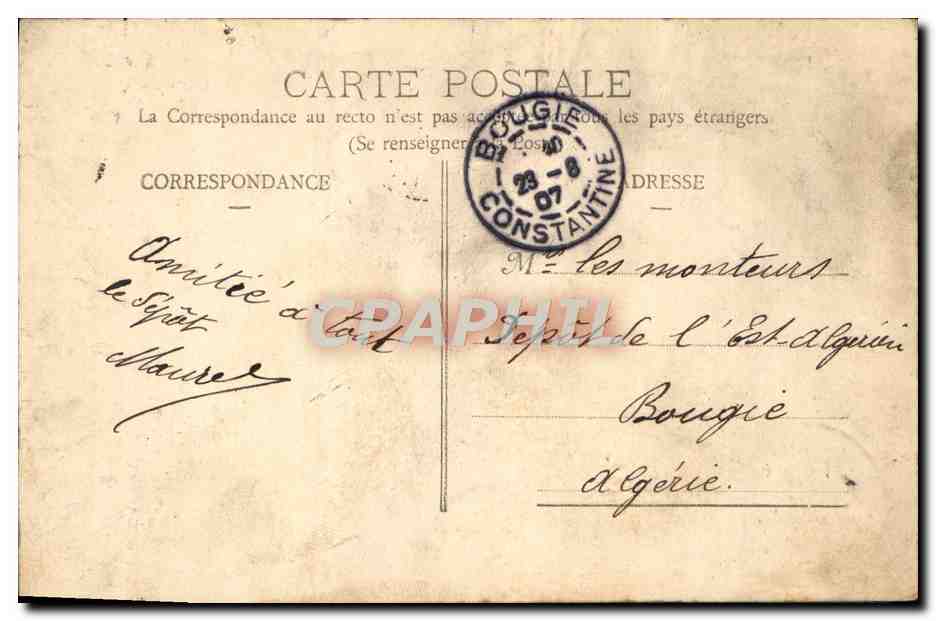 CARTE POSTALE
La Correspondance au recto n'est pas acceptée par tous les pays étrangers
(Se renseigner à la Poste)
CORRESPONDANCE
ADRESSE
BOUGIE
23 - 8
07
CONSTANTINE
Amitié à tout
le Dépôt
Maurel
Mrs les monteurs
Dépôt de l'Est-Algérien
Bougie
Algérie.
CPAPHIL